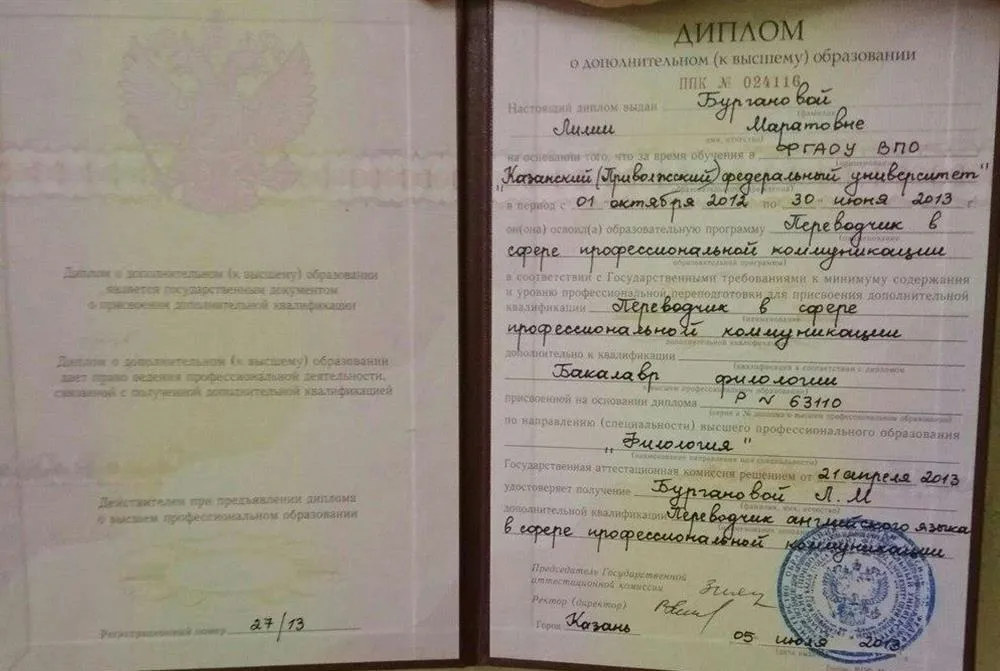 Диплом о дополнительном (к высшему) образовании
является государственным документом
о присвоении дополнительной квалификации
Диплом о дополнительном (к высшему) образовании
дает право ведения профессиональной деятельности,
связанной с полученной дополнительной квалификацией
Действителен при предъявлении диплома
о высшем профессиональном образовании
Регистрационный номер 27/13
ДИПЛОМ
о дополнительном (к высшему) образовании
ППК № 024116
Настоящий диплом выдан Бургановой
(фамилия)
Лилии Маратовне
имя, отчество)
на основании того, что за время обучения в ФГАОУ ВПО
(наименование
"Казанский (Приволжский) федеральный университет"
образовательного учреждения)
в период с 01 октября 2012 по 30 июня 2013 г.
он(она) освоил(а) образовательную программу Переводчик в
(наименование
сфере профессиональной коммуникации
образовательной программы)
в соответствии с Государственными требованиями к минимуму содержания
и уровню профессиональной переподготовки для присвоения дополнительной
квалификации Переводчик в сфере
(наименование
профессиональной коммуникации
дополнительной квалификации)
дополнительно к квалификации
(квалификация в соответствии с дипломом
Бакалавр филологии
о высшем профессиональном образовании)
присвоенной на основании диплома Р N 63110
(серия и № диплома о высшем профессиональном образовании)
по направлению (специальности) высшего профессионального образования
„Филология"
(наименование направления или специальности)
Государственная аттестационная комиссия решением от 21 апреля 2013
удостоверяет получение Бургановой Л.М
(фамилия, имя, отчество)
дополнительной квалификации Переводчик английского языка
в сфере профессиональной коммуникации
Председатель Государственной
аттестационной комиссии
Ректор (директор)
Город Казань
05 июля 2013